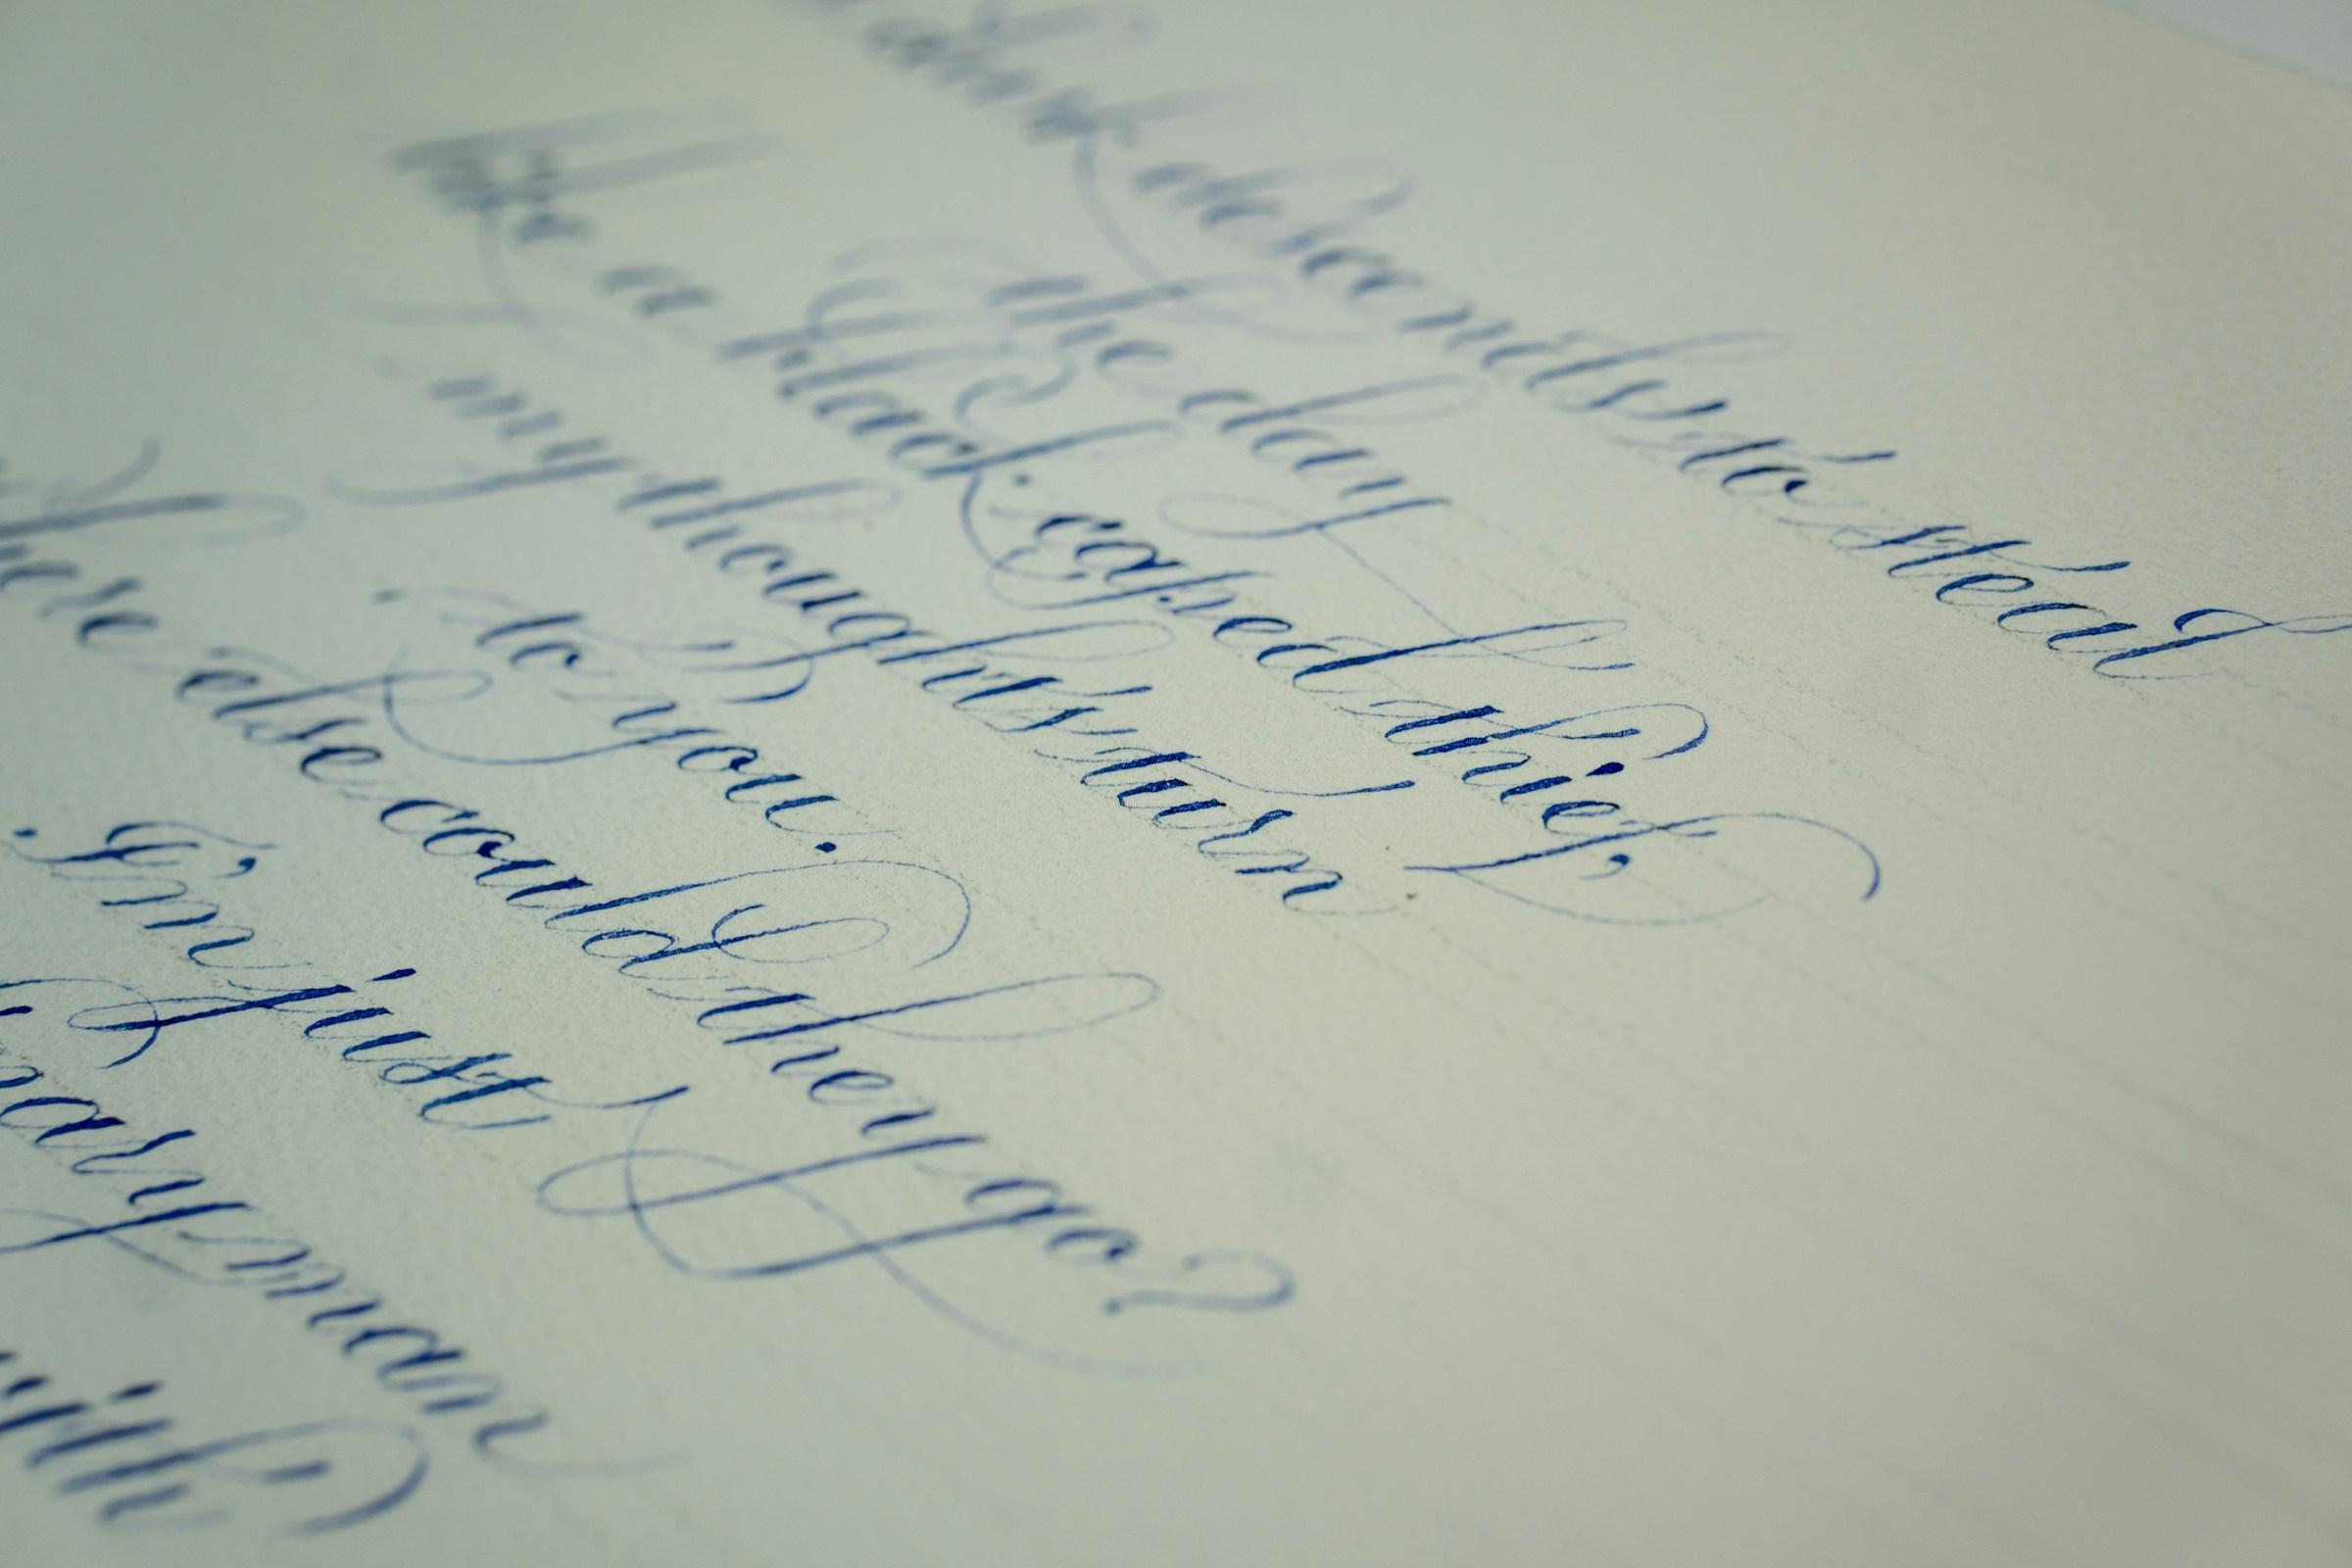 dark descends to steal
the day
like a black caped thief,
my thoughts turn
to you.
where else could they go?
I'm just
ary man
with